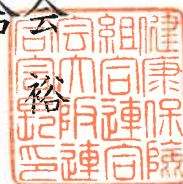 会
裕
健康保険
組合連合
会大阪連
合会長印